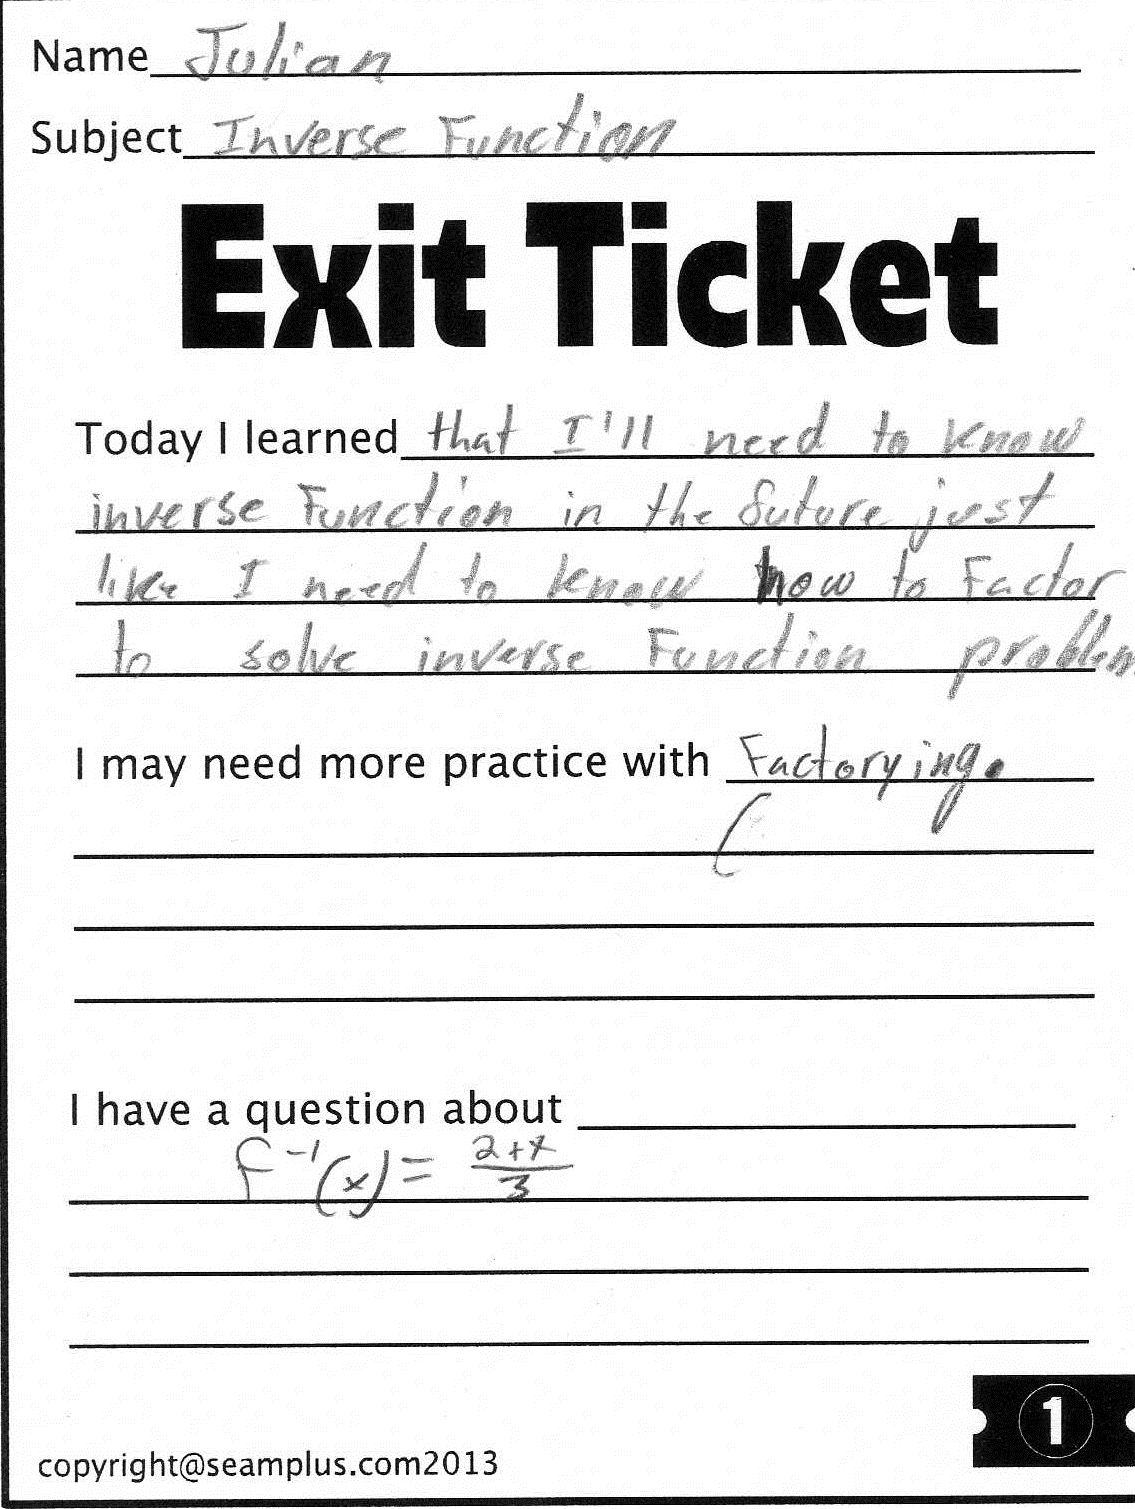 Name Julian
Subject Inverse Function
Exit Ticket
Today I learned that I'll need to know
inverse Function in the future just
like I need to know how to Factor
to solve inverse Function problem
I may need more practice with Factorying.
(
I have a question about
F⁻¹(x) = (2+x)/3
1
copyright@seamplus.com2013